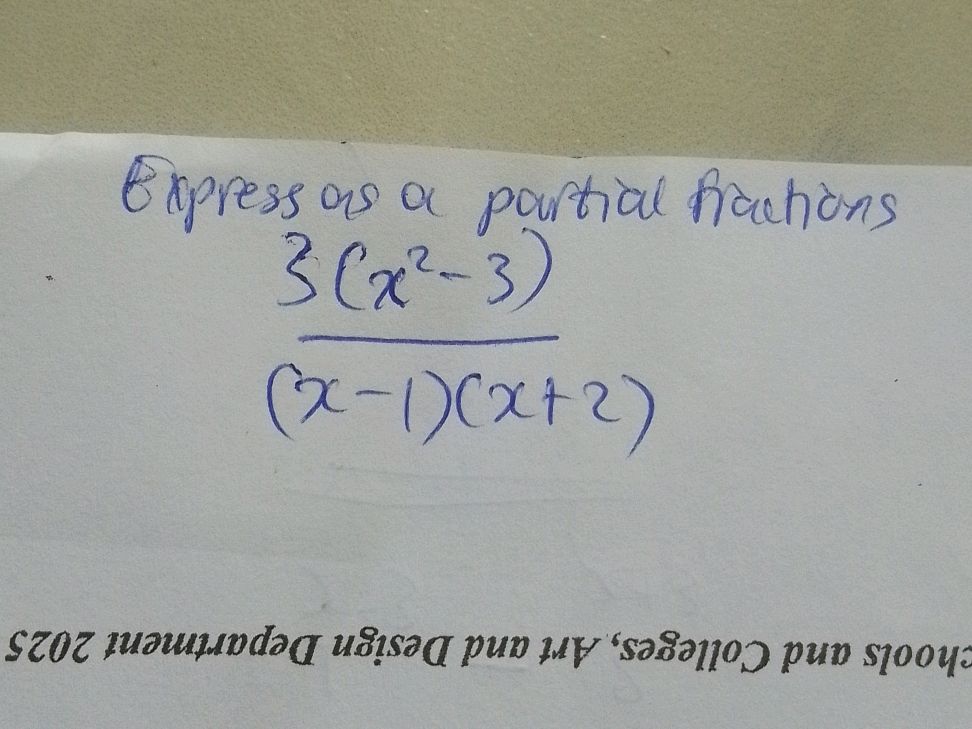 Express as a partial fractions
3(x²-3)
(x-1)(x+2)
chools and Colleges, Art and Design Department 2025